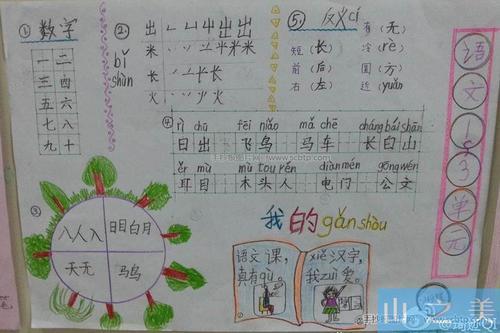 ① 数字
一 二
三 四
五 六
七 八
九 十
② 笔顺
bǐ
shùn
出
米
长
火
⑤ 反义cí
有（无）
短（长） 冷（rè）
前（后） 圆（方）
右（左） 近（yuǎn）
④ rì chū fēi niǎo mǎ chē cháng bái shān
日出 飞鸟 马车 长白山
ěr mù mù tou rén diàn mén gōng wén
耳目 木头人 电门 公文
③
八人入 日目白月
天无 马鸟
我的gǎn shòu
语文课，
真有qù。
xiě汉字，
我zuì爱。
语文1~3单元
山之美